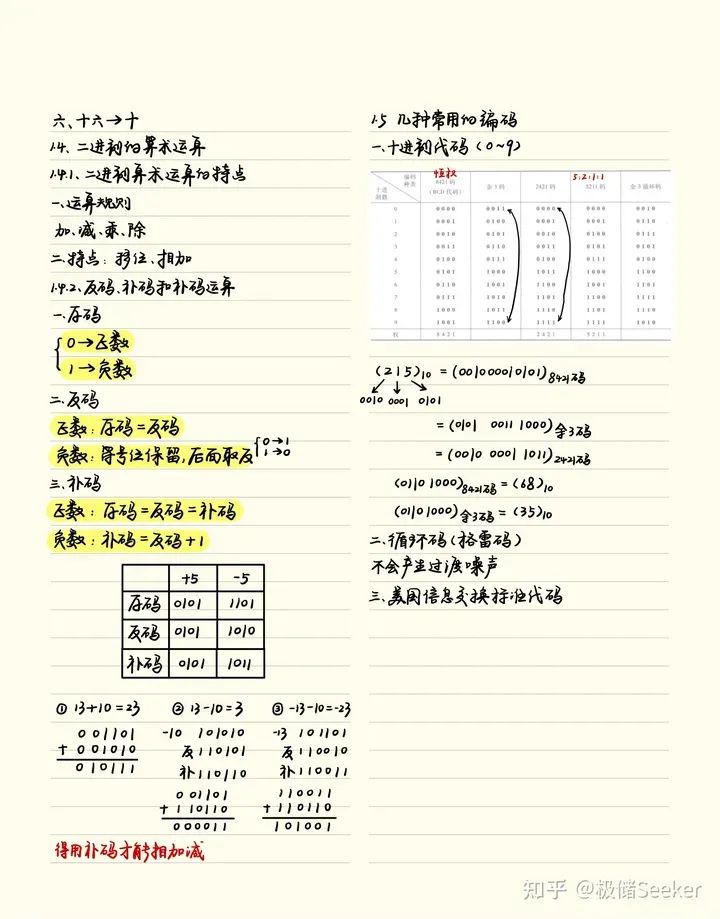 六、十六→十
1.4、二进制的算术运算
1.4.1、二进制算术运算的特点
一、运算规则
加、减、乘、除
二、特点：移位、相加
1.4.2、反码、补码和补码运算
一、原码
0→正数
1→负数
二、反码
正数：原码=反码
负数：符号位保留，后面取反
0→1
1→0
三、补码
正数：原码=反码=补码
负数：补码=反码+1
+5 -5
原码 0101 1101
反码 0101 1010
补码 0101 1011
① 13+10=23 ② 13-10=3 ③ -13-10=-23
001101
+ 001010
010111
-10 101010
反 110101
补 110110
001101
+ 110110
000011
-13 101101
反 110010
补 110011
110011
+ 110110
101001
得用补码才能相加减
1.5 几种常用的编码
一、十进制代码（0~9）
恒权 5:2:1:1
编码种类 十进制数 8421码(BCD代码) 余3码 2421码 5211码 余3循环码
0 0000 0011 0000 0000 0010
1 0001 0100 0001 0001 0110
2 0010 0101 0010 0100 0111
3 0011 0110 0011 0101 0101
4 0100 0111 0100 0111 0100
5 0101 1000 1011 1000 1100
6 0110 1001 1100 1001 1101
7 0111 1010 1101 1100 1111
8 1000 1011 1110 1101 1110
9 1001 1100 1111 1111 1010
权 8421 2421 5211
(215)10 = (001000010101)8421码
0010 0001 0101
= (0101 0011 1000)余3码
= (0010 0001 1011)2421码
(0110 1000)8421码 = (68)10
(0110 1000)余3码 = (35)10
二、循环码（格雷码）
不会产生过渡噪声
三、美国信息交换标准代码
知乎 @极储Seeker